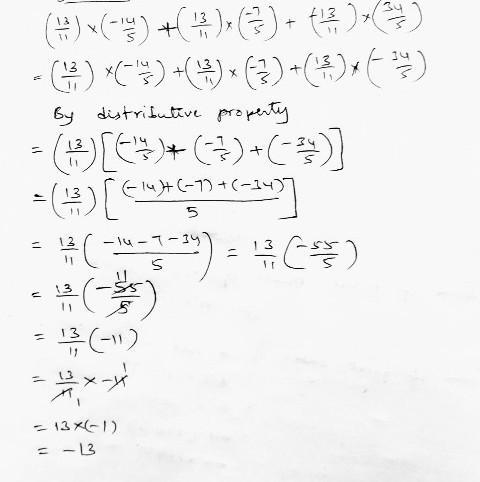 (13/11) × (-14/5) + (13/11) × (-7/5) + (-13/11) × (34/5)
= (13/11) × (-14/5) + (13/11) × (-7/5) + (13/11) × (-34/5)
By distributive property
= (13/11) [(-14/5) + (-7/5) + (-34/5)]
= (13/11) [(-14)+(-7)+(-34)/5]
= 13/11 (-14-7-34/5) = 13/11 (-55/5)
= 13/11 (-55/5) 11
= 13/11 (-11)
= 13/11 1 × -11 1
= 13×(-1)
= -13